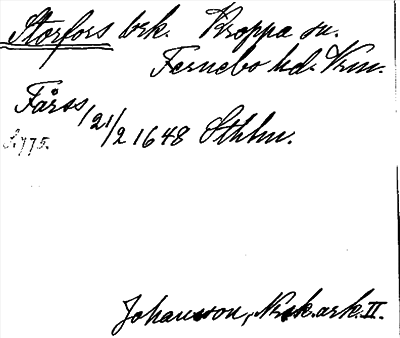 Storfors brk. Kroppa sn.
Fernebo hd. Vrm.
Fårss 1 21/2 1648 Sthlm.
S. 775.
Johansson, Norsk. ark. II.